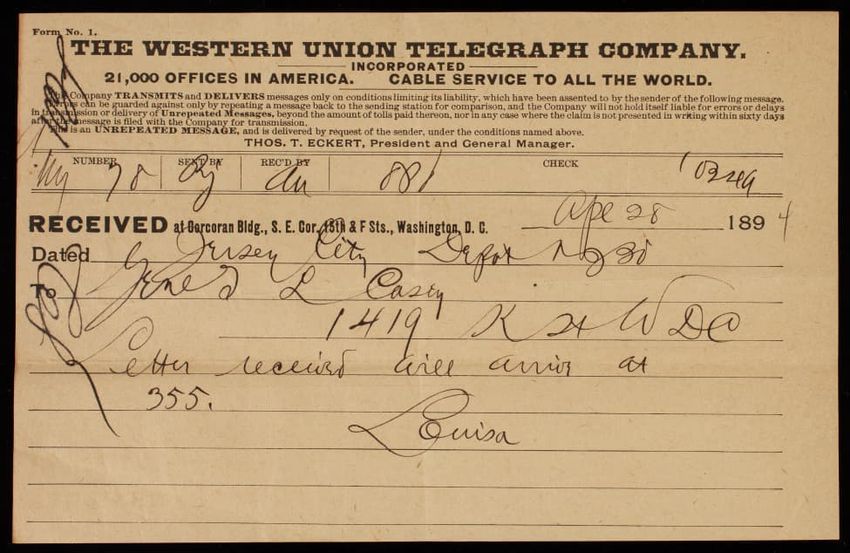 Form No. 1.
THE WESTERN UNION TELEGRAPH COMPANY.
INCORPORATED
21,000 OFFICES IN AMERICA. CABLE SERVICE TO ALL THE WORLD.
This Company TRANSMITS and DELIVERS messages only on conditions limiting its liability, which have been assented to by the sender of the following message.
Errors can be guarded against only by repeating a message back to the sending station for comparison, and the Company will not hold itself liable for errors or delays
in transmission or delivery of Unrepeated Messages, beyond the amount of tolls paid thereon, nor in any case where the claim is not presented in writing within sixty days
after the message is filed with the Company for transmission.
This is an UNREPEATED MESSAGE, and is delivered by request of the sender, under the conditions named above.
THOS. T. ECKERT, President and General Manager.
NUMBER SENT BY REC'D BY CHECK
78
RECEIVED at Corcoran Bldg., S. E. Cor. 15th & F Sts., Washington, D. C. Ape 28 1894
Dated Jersey City Depot
To Genl T L Casey
1419 K St W DC
Letter received will arrive at
355.
Louisa